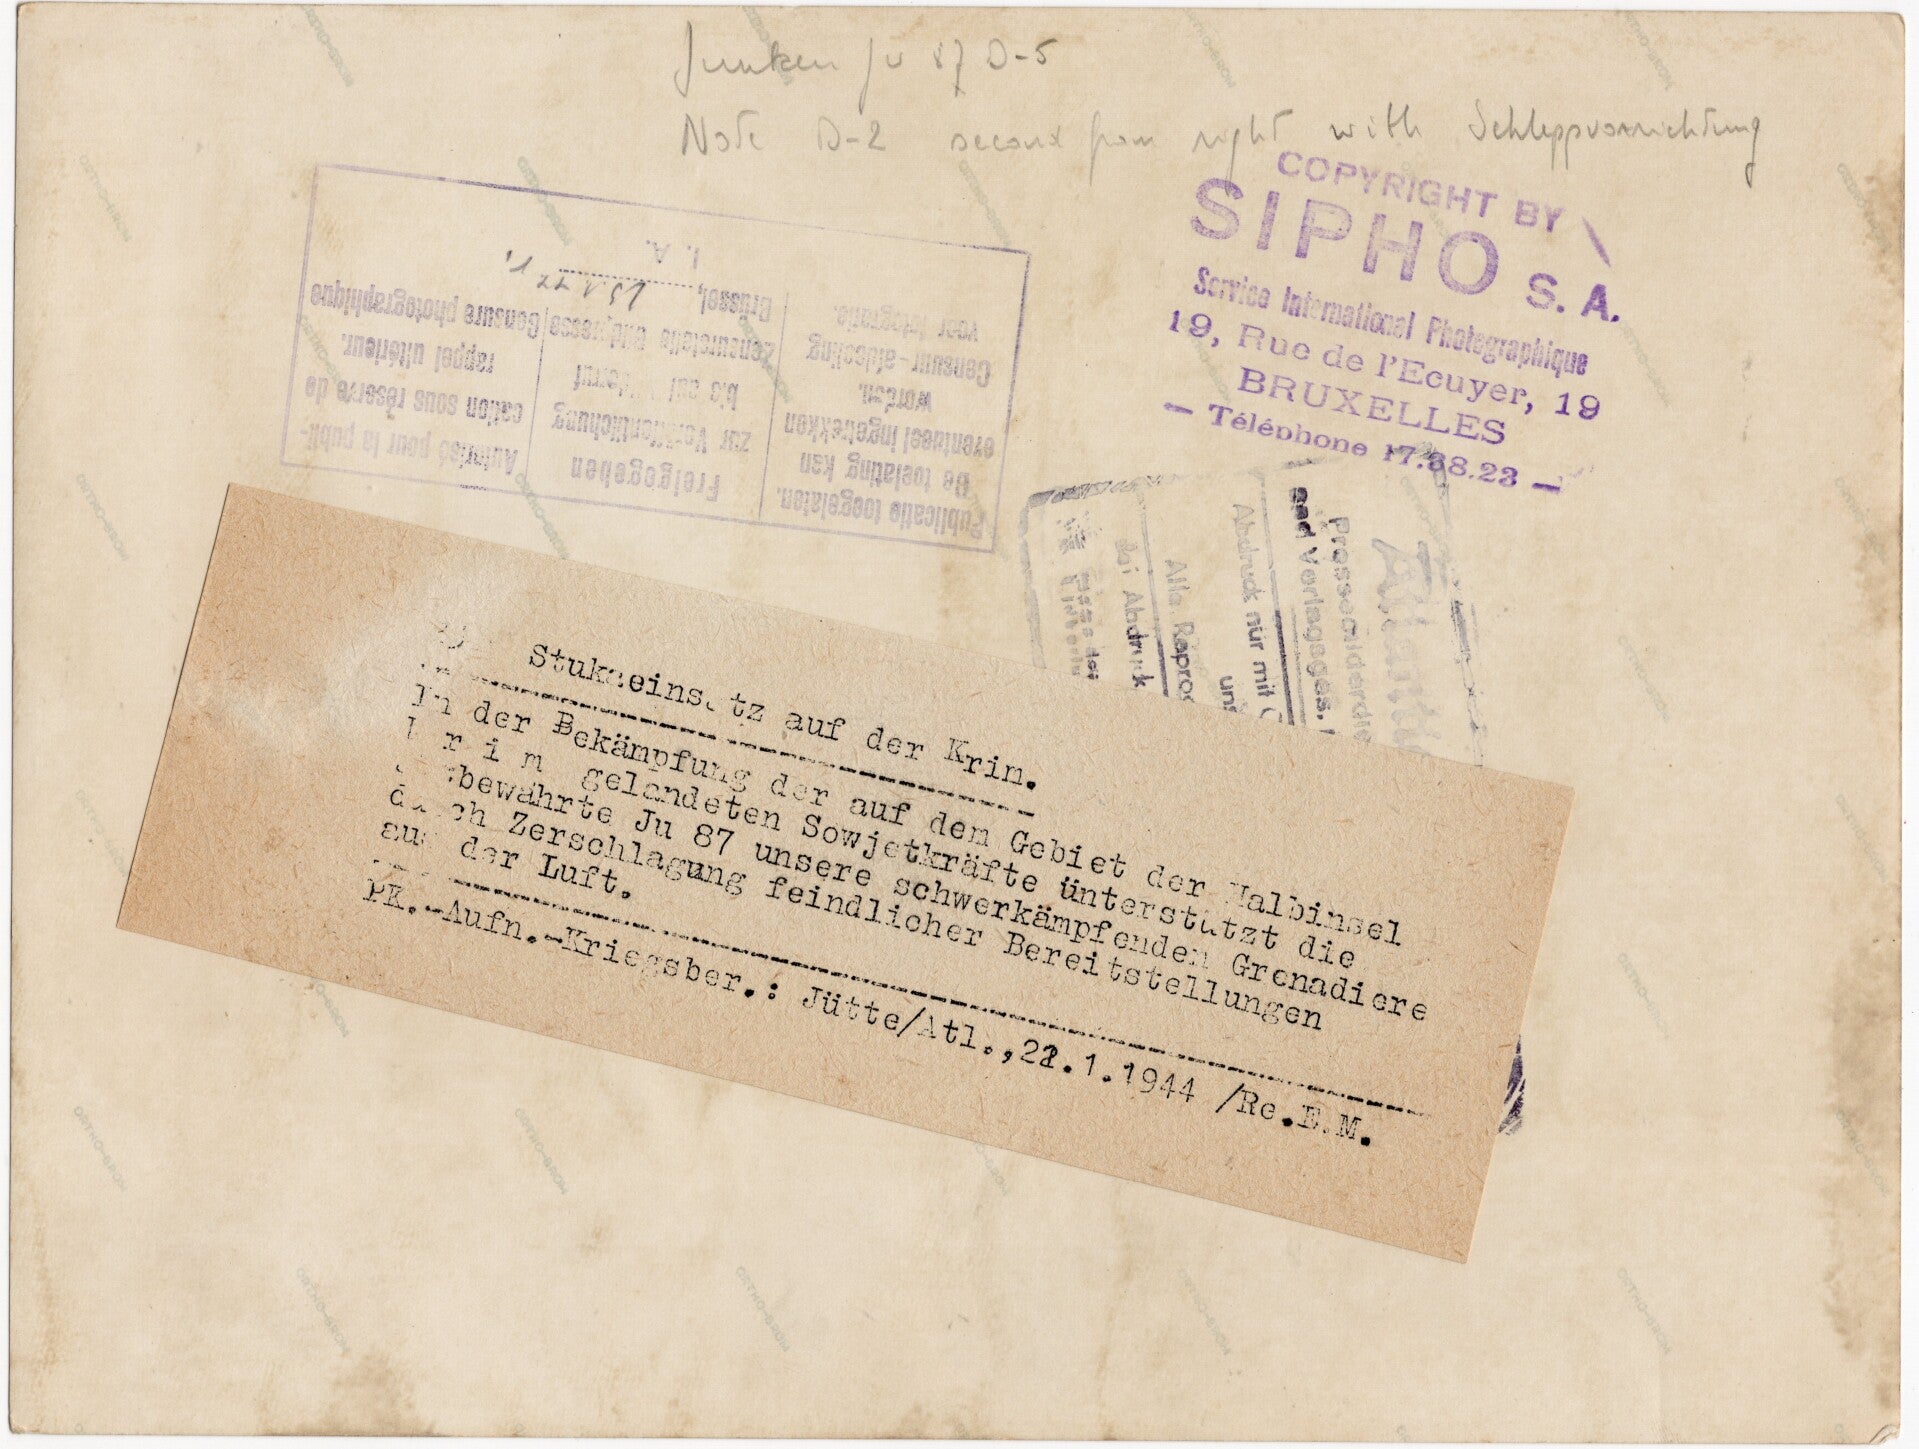 Junkers Ju 87 D-5
Note D-2 second from right with Schleppvorrichtung
COPYRIGHT BY
SIPHO S. A.
Service International Photographique
19, Rue de l'Ecuyer, 19
BRUXELLES
— Téléphone 17.38.23 —
Publicatie toegelaten.
De toelating kan
eventueel ingetrekken
worden.
Censuur-afdeeling
voor fotografie.
Freigegeben
zur Veröffentlichung
bis auf
Zensurstelle
Brüssel,
I. A.
Autorisé pour la publi-
cation sous réserve de
rappel ultérieur.
Censure photographique
Atlantic
Pressebilderdie
und Verlagsges.
Abdruck nur mit
uns
Alle Reproc
bei Abdruck
Stukaeinsatz auf der Krim.
In der Bekämpfung der auf dem Gebiet der Halbinsel
K r i m gelandeten Sowjetkräfte ünterstützt die
bewährte Ju 87 unsere schwerkämpfenden Grenadiere
durch Zerschlagung feindlicher Bereitstellungen
aus der Luft.
PK.-Aufn.-Kriegsber.: Jütte/Atl.,22.1.1944 /Re.E.M.
MOSB-ORTHO